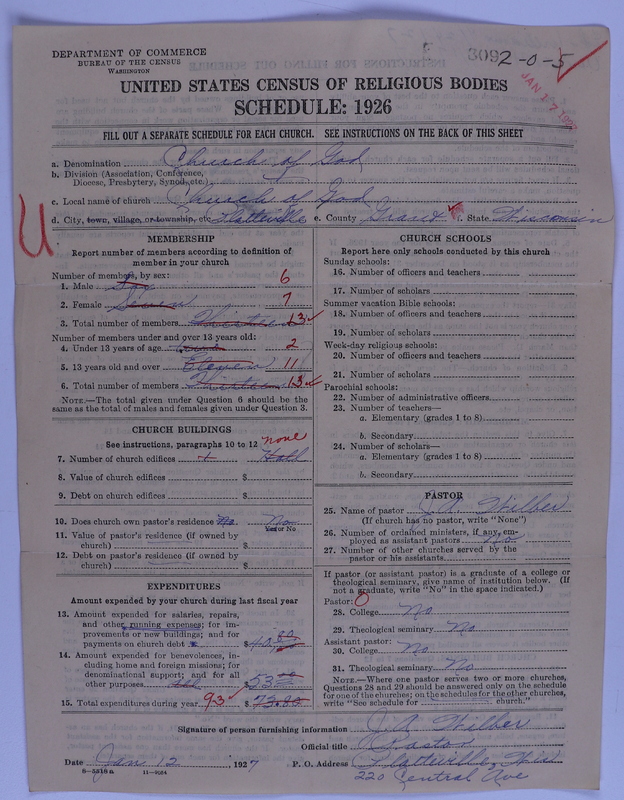 DEPARTMENT OF COMMERCE
BUREAU OF THE CENSUS
WASHINGTON
3092-0-5
JAN 17
UNITED STATES CENSUS OF RELIGIOUS BODIES
SCHEDULE: 1926
FILL OUT A SEPARATE SCHEDULE FOR EACH CHURCH. SEE INSTRUCTIONS ON THE BACK OF THIS SHEET
a. Denomination Church of God
b. Division (Association, Conference, Diocese, Presbytery, Synod, etc.)
c. Local name of church Church of God
d. City, town, village, or township, etc. Platteville e. County Grant f. State Wisconsin
U
MEMBERSHIP
Report number of members according to definition of member in your church
Number of members, by sex:
1. Male Six 6
2. Female Seven 7
3. Total number of members Thirteen 13
Number of members under and over 13 years old:
4. Under 13 years of age 2
5. 13 years old and over Eleven 11
6. Total number of members Thirteen 13
NOTE.—The total given under Question 6 should be the same as the total of males and females given under Question 3.
CHURCH BUILDINGS
See instructions, paragraphs 10 to 12 none
7. Number of church edifices Hall
8. Value of church edifices $
9. Debt on church edifices $
10. Does church own pastor's residence No No
Yes or No
11. Value of pastor's residence (if owned by church) $
12. Debt on pastor's residence (if owned by church) $
EXPENDITURES
Amount expended by your church during last fiscal year
13. Amount expended for salaries, repairs, and other running expenses; for improvements or new buildings; and for payments on church debt $ 40.80
14. Amount expended for benevolences, including home and foreign missions; for denominational support; and for all other purposes $ 53.00
15. Total expenditures during year 93 $ 73.80
CHURCH SCHOOLS
Report here only schools conducted by this church
Sunday schools:
16. Number of officers and teachers
17. Number of scholars
Summer vacation Bible schools:
18. Number of officers and teachers
19. Number of scholars
Week-day religious schools:
20. Number of officers and teachers
21. Number of scholars
Parochial schools:
22. Number of administrative officers
23. Number of teachers—
a. Elementary (grades 1 to 8)
b. Secondary
24. Number of scholars—
a. Elementary (grades 1 to 8)
b. Secondary
PASTOR
25. Name of pastor J. A. Wilber
(If church has no pastor, write "None")
26. Number of ordained ministers, if any, employed as assistant pastors No
27. Number of other churches served by the pastor or his assistants
If pastor (or assistant pastor) is a graduate of a college or theological seminary, give name of institution below. (If not a graduate, write "No" in the space indicated.)
Pastor: O
28. College No
29. Theological seminary No
Assistant pastor:
30. College No
31. Theological seminary No
NOTE.—Where one pastor serves two or more churches, Questions 28 and 29 should be answered only on the schedule for one of the churches; on the schedules for the other churches, write "See schedule for church."
Signature of person furnishing information J. A. Wilber
Official title Pastor
Date Jan 12, 1927 P. O. Address Platteville, Wis
220 Central Ave
8-5318a 11-9064